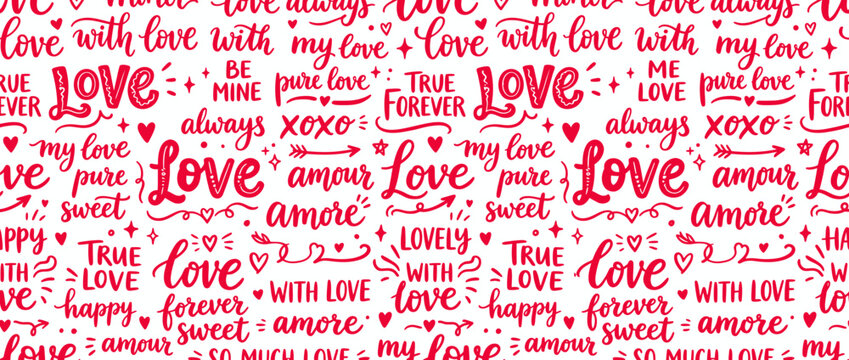 love with love with my love love with love with my love love
TRUE
FOREVER
Love
BE
MINE
pure love
TRUE
FOREVER
Love
ME
LOVE
pure love
TRUE
FOREVER
always
xoxo
always
xoxo
my love
pure
sweet
Love
amour
amore
Love
my love
pure
sweet
Love
amour
amore
TRUE
LOVE
happy
love
forever
sweet
WITH LOVE
amore
LOVELY
WITH
love
TRUE
LOVE
happy
love
forever
sweet
WITH LOVE
amore
WITH
love
amour
SO MUCH LOVE
my love
amour
SO MUCH LOVE
my